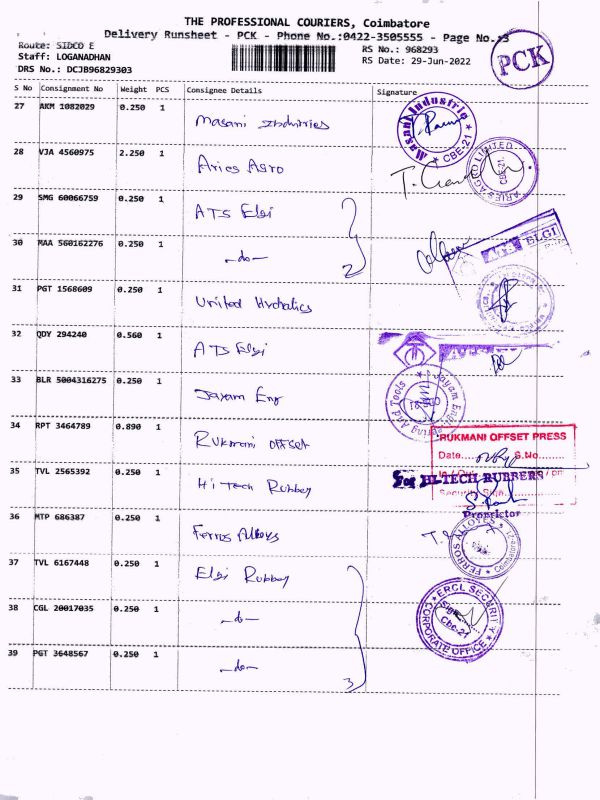 THE PROFESSIONAL COURIERS, Coimbatore
Delivery Runsheet - PCK - Phone No.:0422-3505555 - Page No.:3
Route: SIDCO E
RS No.: 968293
Staff: LOGANADHAN
RS Date: 29-Jun-2022
DRS No.: DCJB96829303
PCK
S No Consignment No Weight PCS Consignee Details Signature
27 AKM 1082029 0.250 1 Masani Industries
Masani Industries CBE-21
28 VJA 4560975 2.250 1 Aries Agro
ARIES AGRO LIMITED CBE-21
29 SMG 60066759 0.250 1 ATS Elgi
30 MAA 560162276 0.250 1 -do- 2
ATS ELGI
31 PGT 1568609 0.250 1 United
32 QDY 294240 0.560 1 ATS Elgi
33 BLR 5004316275 0.250 1 Jayam Eng
Jayam And Tools
34 RPT 3464789 0.890 1 Rukmani Offset
RUKMANI OFFSET PRESS
Date S.No
35 TVL 2565392 0.250 1 Hi Tech Rubber
For HI-TECH RUBBERS
Proprietor
36 MTP 686387 0.250 1 Ferros Alloys
FERROS ALLOYES Coimbatore
37 TVL 6167448 0.250 1 Elgi Rubber
38 CGL 20017035 0.250 1 -do-
ERCL SECURITY CORPORATE OFFICE Sign CBE-21
39 PGT 3648567 0.250 1 -do- 3